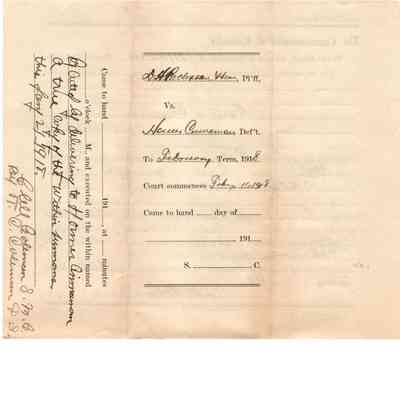 Pl'ff.
Vs.
Def't.
To February Term, 1918
Court commences Feby 11 1918
Came to hand ____ day of ____
____ 191__
S. ____ C.
Came to hand ____ 191__, at ____ minutes
____ o'clock ____ M. and executed on the within named
Acted by delivering to Homer Cinnamon
a true copy of the within summons
this Jany 21 1918.
Coleman S. M. C.
By Coleman D. S.